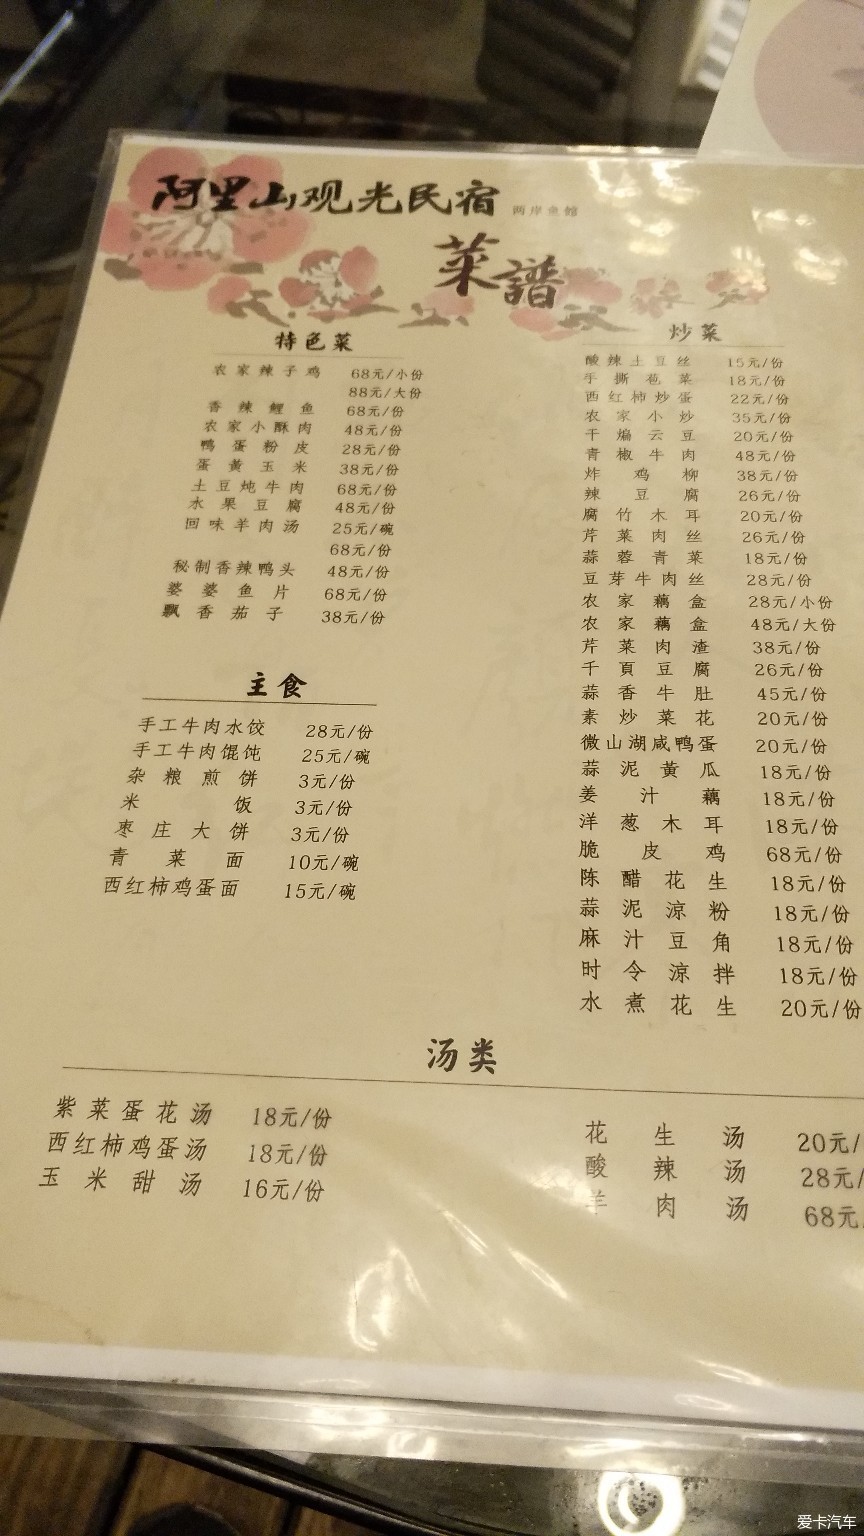 阿里山观光民宿 两岸鱼馆
菜譜
特色菜
农家辣子鸡 68元/小份
88元/大份
香辣鲤鱼 68元/份
农家小酥肉 48元/份
鸭蛋粉皮 28元/份
蛋黄玉米 38元/份
土豆炖牛肉 68元/份
水果豆腐 48元/份
回味羊肉汤 25元/碗
68元/份
秘制香辣鸭头 48元/份
婆婆鱼片 68元/份
飘香茄子 38元/份
主食
手工牛肉水饺 28元/份
手工牛肉馄饨 25元/碗
杂粮煎饼 3元/份
米饭 3元/份
枣庄大饼 3元/份
青菜面 10元/碗
西红柿鸡蛋面 15元/碗
炒菜
酸辣土豆丝 15元/份
手撕苞菜 18元/份
西红柿炒蛋 22元/份
农家小炒 35元/份
干煸云豆 20元/份
青椒牛肉 48元/份
炸鸡柳 38元/份
辣豆腐 26元/份
腐竹木耳 20元/份
芹菜肉丝 26元/份
蒜蓉青菜 18元/份
豆芽牛肉丝 28元/份
农家藕盒 28元/小份
农家藕盒 48元/大份
芹菜肉渣 38元/份
千頁豆腐 26元/份
蒜香牛肚 45元/份
素炒菜花 20元/份
微山湖咸鸭蛋 20元/份
蒜泥黄瓜 18元/份
姜汁藕 18元/份
洋葱木耳 18元/份
脆皮鸡 68元/份
陈醋花生 18元/份
蒜泥凉粉 18元/份
麻汁豆角 18元/份
时令凉拌 18元/份
水煮花生 20元/份
汤类
紫菜蛋花汤 18元/份
西红柿鸡蛋汤 18元/份
玉米甜汤 16元/份
花生汤 20元/
酸辣汤 28元/
羊肉汤 68元/
爱卡汽车